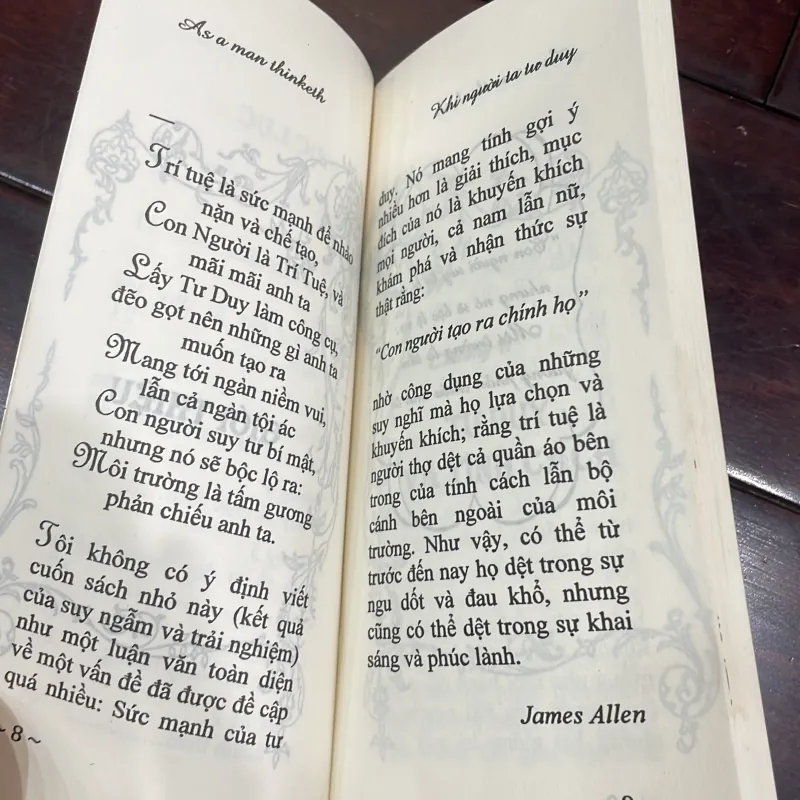 As a man thinketh
Trí tuệ là sức mạnh để nhào
nặn và chế tạo,
Con Người là Trí Tuệ, và
mãi mãi anh ta
Lấy Tư Duy làm công cụ,
đẽo gọt nên những gì anh ta
muốn tạo ra
Mang tới ngàn niềm vui,
lẫn cả ngàn tội ác
Con người suy tư bí mật,
nhưng nó sẽ bộc lộ ra:
Môi trường là tấm gương
phản chiếu anh ta.
Tôi không có ý định viết
cuốn sách nhỏ này (kết quả
của suy ngẫm và trải nghiệm)
như một luận văn toàn diện
về một vấn đề đã được đề cập
quá nhiều: Sức mạnh của tư
~ 8 ~
Khi người ta tư duy
duy. Nó mang tính gợi ý
nhiều hơn là giải thích, mục
đích của nó là khuyến khích
mọi người, cả nam lẫn nữ,
khám phá và nhận thức sự
thật rằng:
“Con người tạo ra chính họ”
nhờ công dụng của những
suy nghĩ mà họ lựa chọn và
khuyến khích; rằng trí tuệ là
người thợ dệt cả quần áo bên
trong của tính cách lẫn bộ
cánh bên ngoài của môi
trường. Như vậy, có thể từ
trước đến nay họ dệt trong sự
ngu dốt và đau khổ, nhưng
cũng có thể dệt trong sự khai
sáng và phúc lành.
James Allen